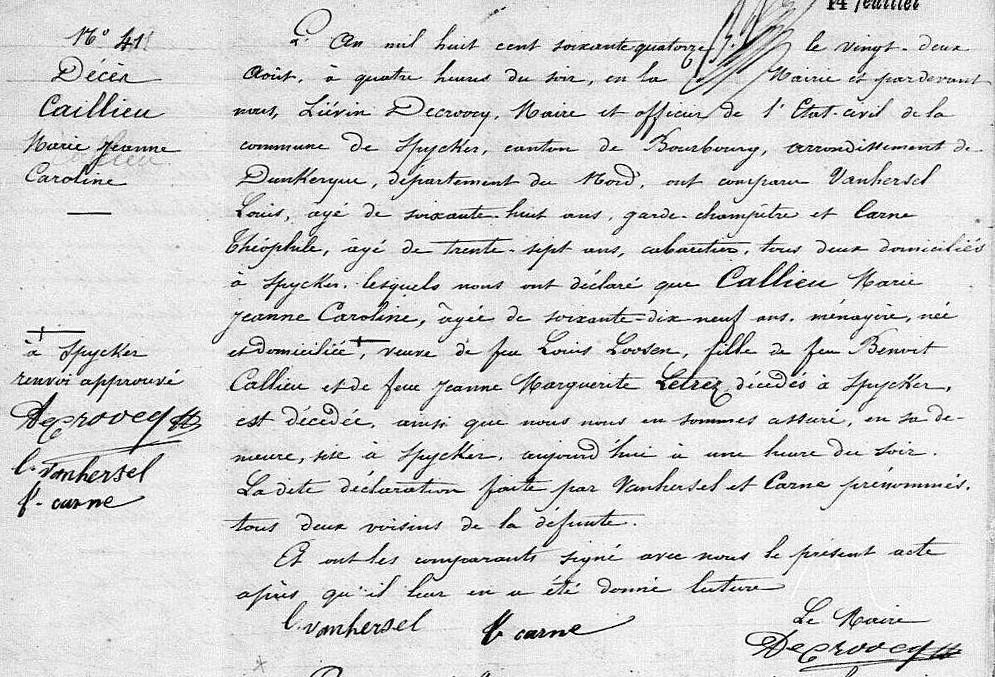 14 feuillet
N° 41
Décès
Caillieu
Marie Jeanne
Caroline
L'An mil huit cent soixante quatorze, le vingt-deux
Août, à quatre heures du soir, en la Mairie et pardevant
nous, Liévin Decroocq, Maire et officier de l'Etat-civil de la
commune de Spycker, canton de Bourbourg, arrondissement de
Dunkerque, département du Nord, ont comparu Vanhersel
Louis, âgé de soixante-huit ans, garde-champêtre et Carne
Théophile, âgé de trente-sept ans, cabaretier, tous deux domiciliés
à Spycker, lesquels nous ont déclaré que Callieu Marie
Jeanne Caroline, âgée de soixante-dix neuf ans, ménagère, née
et domiciliée +, veuve de feu Louis Loosen, fille de feu Benoit
Callieu et de feue Jeanne Marguerite Letrez décédés à Spycker,
est décédée, ainsi que nous nous en sommes assuré, en sa de-
meure, sise à Spycker, aujourd'hui à une heure du soir.
La dite déclaration faite par Vanhersel et Carne prénommés,
tous deux voisins de la défunte.
Et ont les comparants signé avec nous le présent acte
après qu'il leur en a été donné lecture
+
à Spycker
renvoi approuvé
Decroocq
L. Vanhersel
t. carne
L. Vanhersel t. carne
Le Maire
Decroocq